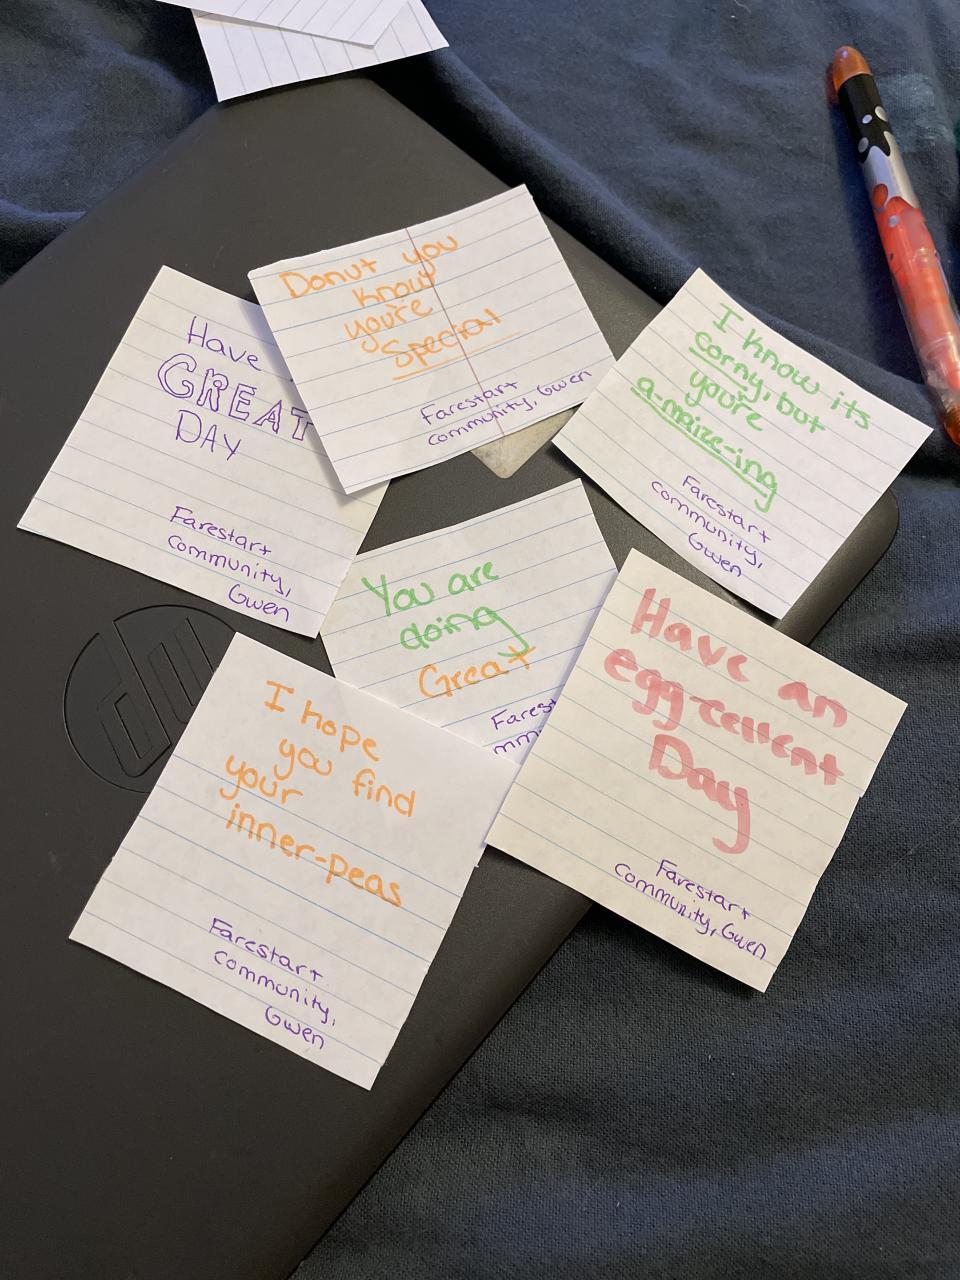 Have
GREAT
DAY
Farestart
community,
Gwen
Donut you
know
you're
special
Farestart
community, Gwen
I know its
corny, but
you're
a-maize-ing
Farestart
community,
Gwen
You are
doing
Great
Farest
mm
I hope
you find
your
inner-peas
Farestart
community,
Gwen
Have an
egg-cellent
Day
Farestart
community, Gwen
hp